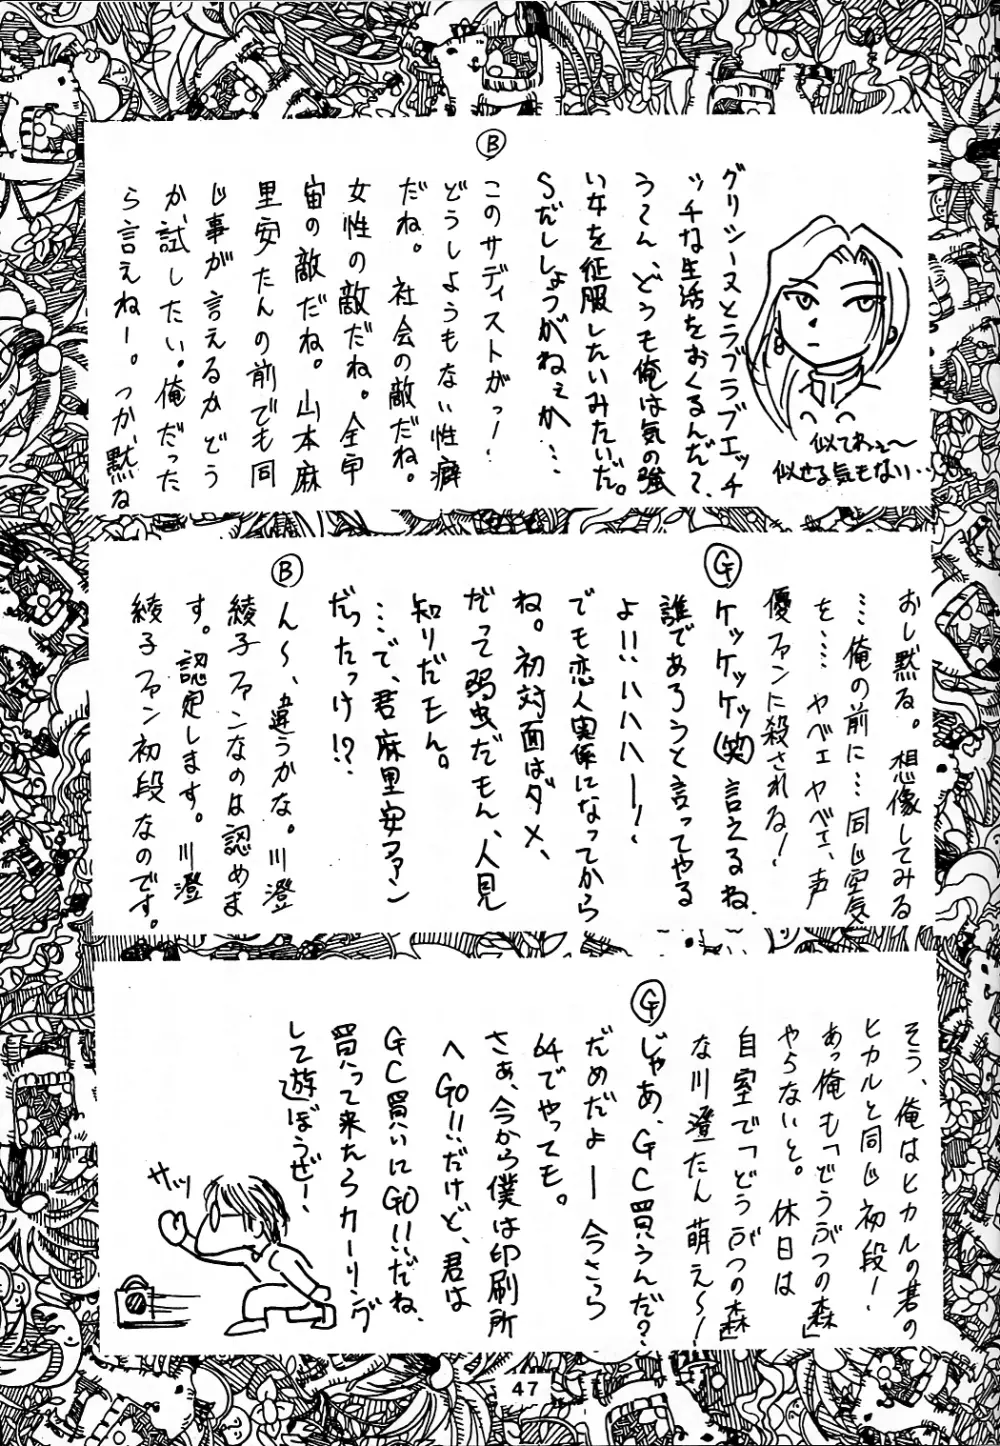 グリシーヌとラブラブエッチ
ッチな生活をおくるんだ？
うーん、どうも俺は気の強
い女を征服したいみたいだ。
Sだししょうがねぇか…
似てねぇ〜
似せる気もない…
Ⓑ
このサディストがっ！
どうしようもない性癖
だね。社会の敵だね。
女性の敵だね。全宇
宙の敵だね。山本麻
里安たんの前でも同
じ事が言えるかどう
か試したい。俺だった
ら言えねー。つか、黙る
おし黙る。想像してみる
…俺の前に…同じ空気
を…… ヤベェヤベェ、声
優ファンに殺される！
Ⓖ
ケッケッケッ(笑)言えるね、
誰であろうと言ってやる
よ!!ハハハー！
でも恋人関係になってから
ね。初対面はダメ、
だって弱虫だもん、人見
知りだモん。
…で、君麻里安ファン
だったっけ!?
Ⓑ
ん〜、違うかな。川澄
綾子ファンなのは認めま
す。認定します。川澄
綾子ファン初段なのです。
そう、俺はヒカルの碁の
ヒカルと同じ初段！
あっ俺も「どうぶつの森」
やらないと。休日は
自室で「どうぶつの森」
な川澄たん萌え〜！
Ⓖ
じゃあ、GC買うんだ？
だめだよー 今さら
64でやっても。
さぁ、今から僕は印刷所
へGO!!だけど、君は
GC買いにGO!!だね、
買って来たらカーリング
して遊ぼうぜー！
サッ
47